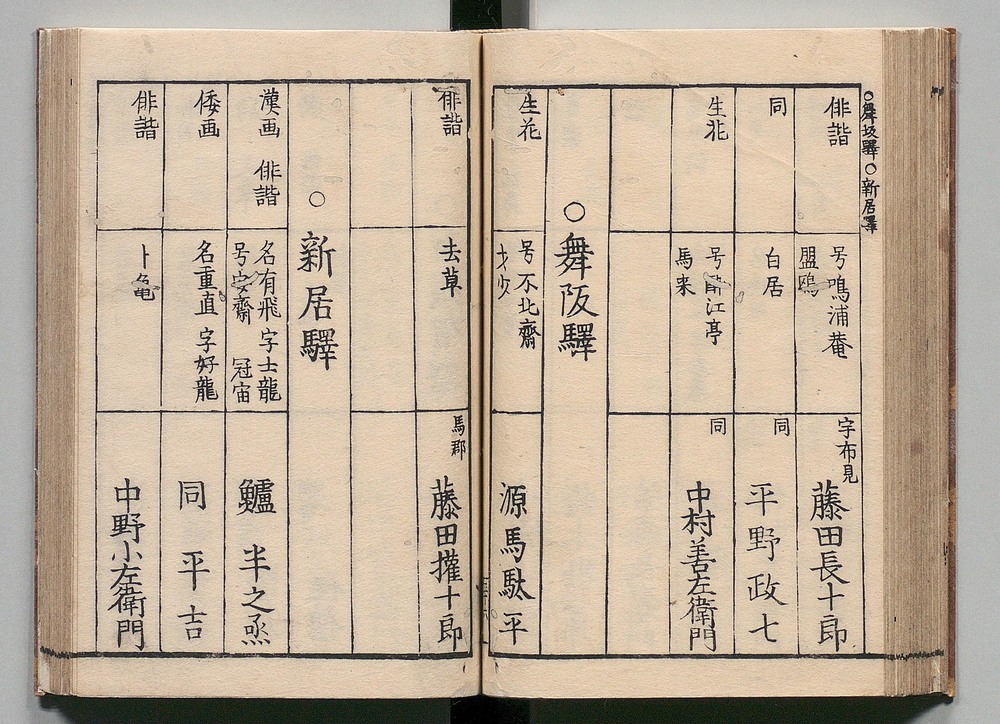 ○舞坂驛○新居驛
俳諧
号鳴浦菴
盟鴎
宇布見
藤田長十郎
同
白居
同
平野政七
生花
号 江亭
馬来
同
中村善左衛門
○舞阪驛
生花
号不北齋
才少
源馬駄平
俳諧
去草
馬郡
藤田權十郎
○新居驛
漢画 俳諧
名有飛 字士龍
号安齋 冠宙
鱸 半之烝
倭画
名重直 字好龍
同 平吉
俳諧
卜亀
中野小左衛門